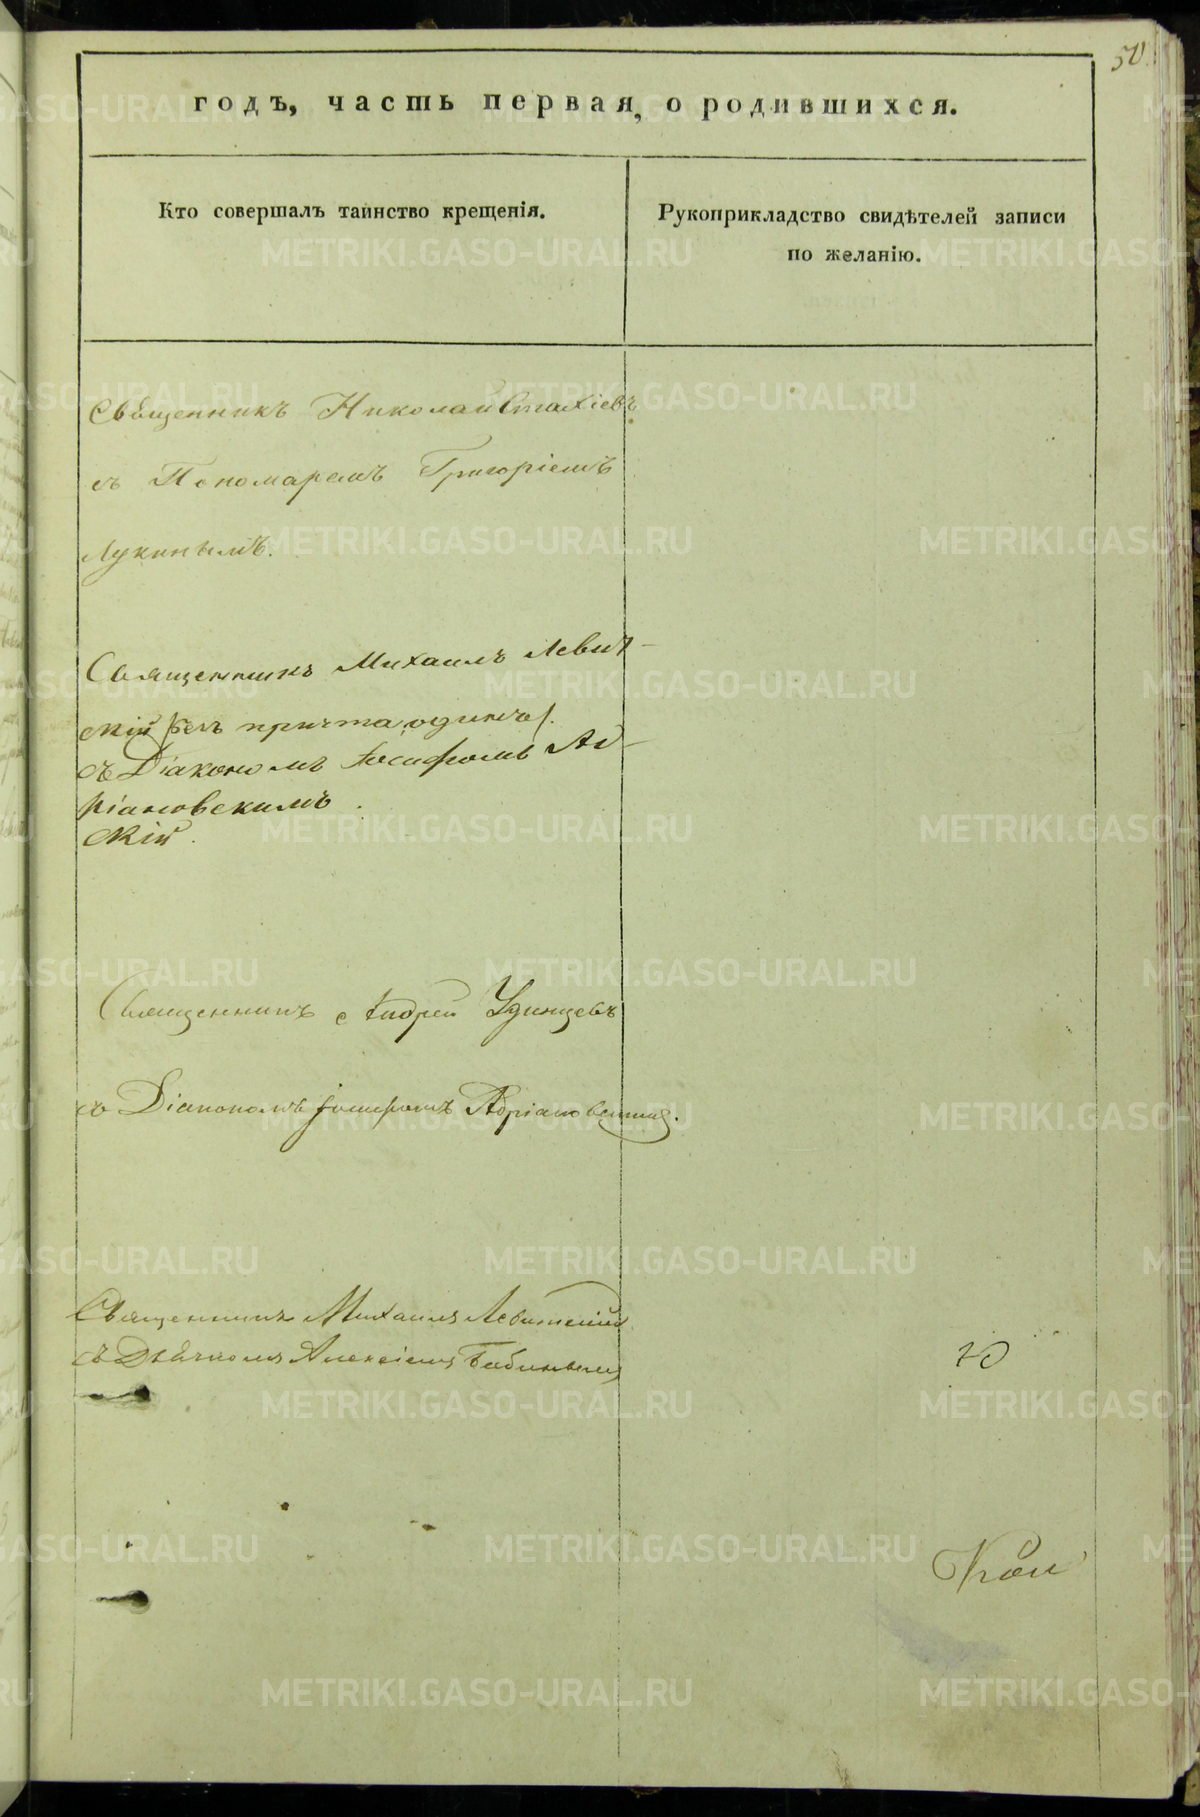 50.
годъ, часть первая, о родившихся.
Кто совершалъ таинство крещенія.
Рукоприкладство свидѣтелей записи
по желанію.
Священникъ Николай Стахіевъ
съ Пономаремъ Григоріемъ
Лукинымъ.
Священникъ Михаилъ Левит-
скій /безъ причта одинъ/.
съ Діакономъ Іосифомъ Ад-
ріановскимъ
скій.
Священникъ Андрей Удинцевъ
съ Діакономъ Іосифомъ Адріановскимъ.
Священникъ Михаилъ Левитскій
съ Дьячкомъ Алексіемъ Бабинымъ
METRIKI.GASO-URAL.RU